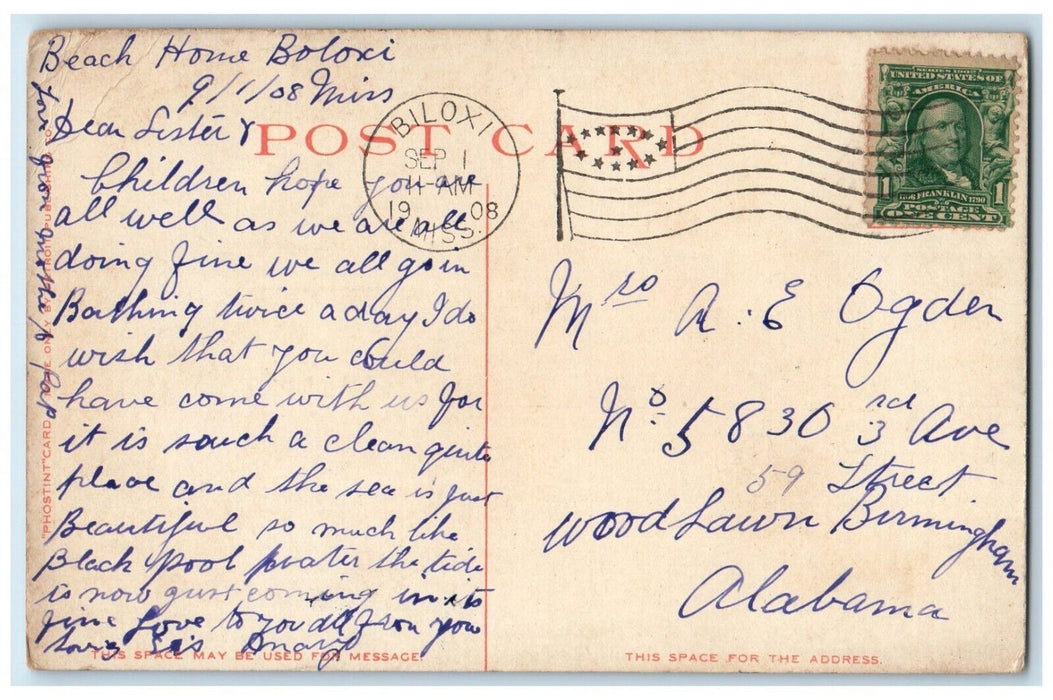 Beach Home Boloxi
9/1/08 Miss
Dear Sister &
Children hope you are
all well as we are all
doing fine we all go in
Bathing twice a day I do
wish that you could
have come with us for
it is souch a clean quite
place and the sea is just
Beautiful so much like
Black pool water the tide
is now gust coming in its
fine Love to you all from your
loving Sis
POST CARD
BILOXI
SEP 1
11-AM
19 08
MISS.
SERIES 1902
UNITED STATES OF
AMERICA
1 FRANKLIN 1
POSTAGE
ONE CENT
Mrs A. E Ogden
No. 5830 3rd Ave
59 Street
Wood Lawn Birmingham
Alabama
"PHOSTINT" CARD MADE ONLY BY DETROIT PUBLISHING CO.
THIS SPACE MAY BE USED FOR MESSAGE.
THIS SPACE FOR THE ADDRESS.